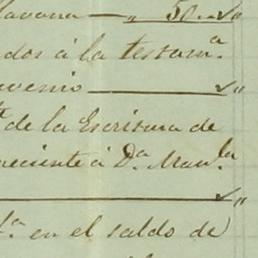 Havana — „ 50.. „
dos á la testamᵃ.
venio „
de la Escritura de
neciente á Dᵃ. Manˡᵃ
„
en el saldo de